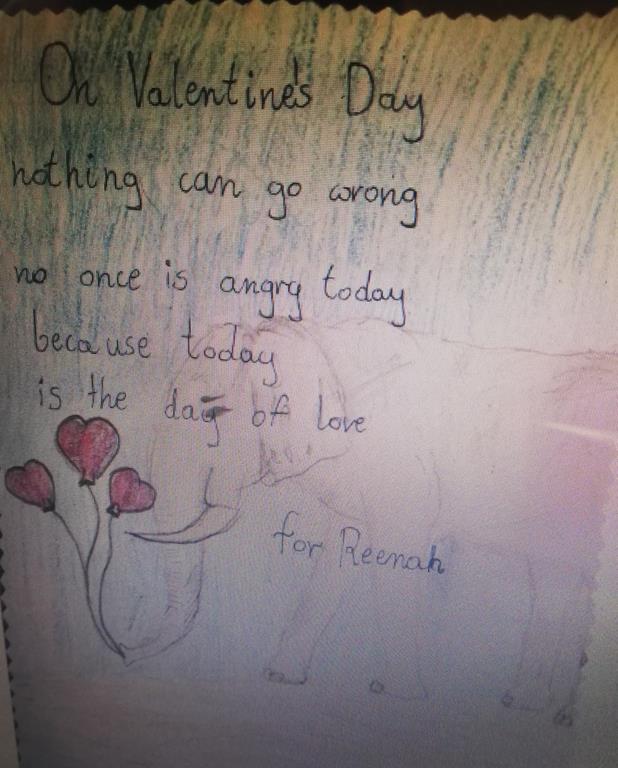 On Valentine's Day
nothing can go wrong
no once is angry today
because today
is the day of love
for Reenah